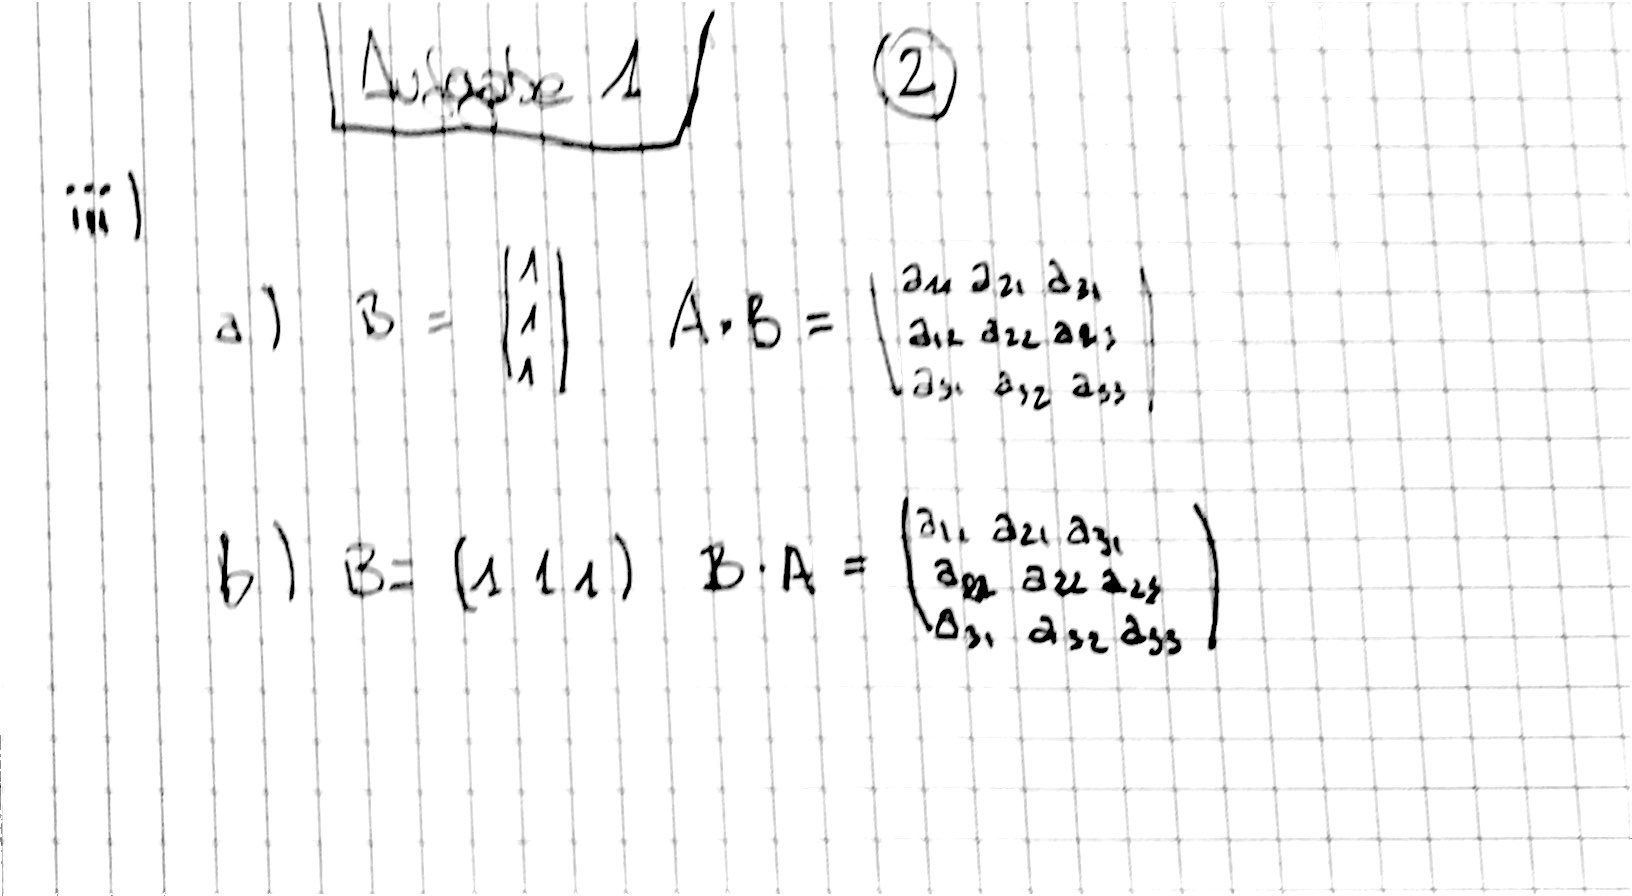 Aufgabe 1 2
iii)
a) B = (1 1 1) A·B = (a11 a21 a31
a12 a22 a23
a31 a32 a33)
b) B = (1 1 1) B·A = (a11 a21 a31
a22 a23
a31 a32 a33)